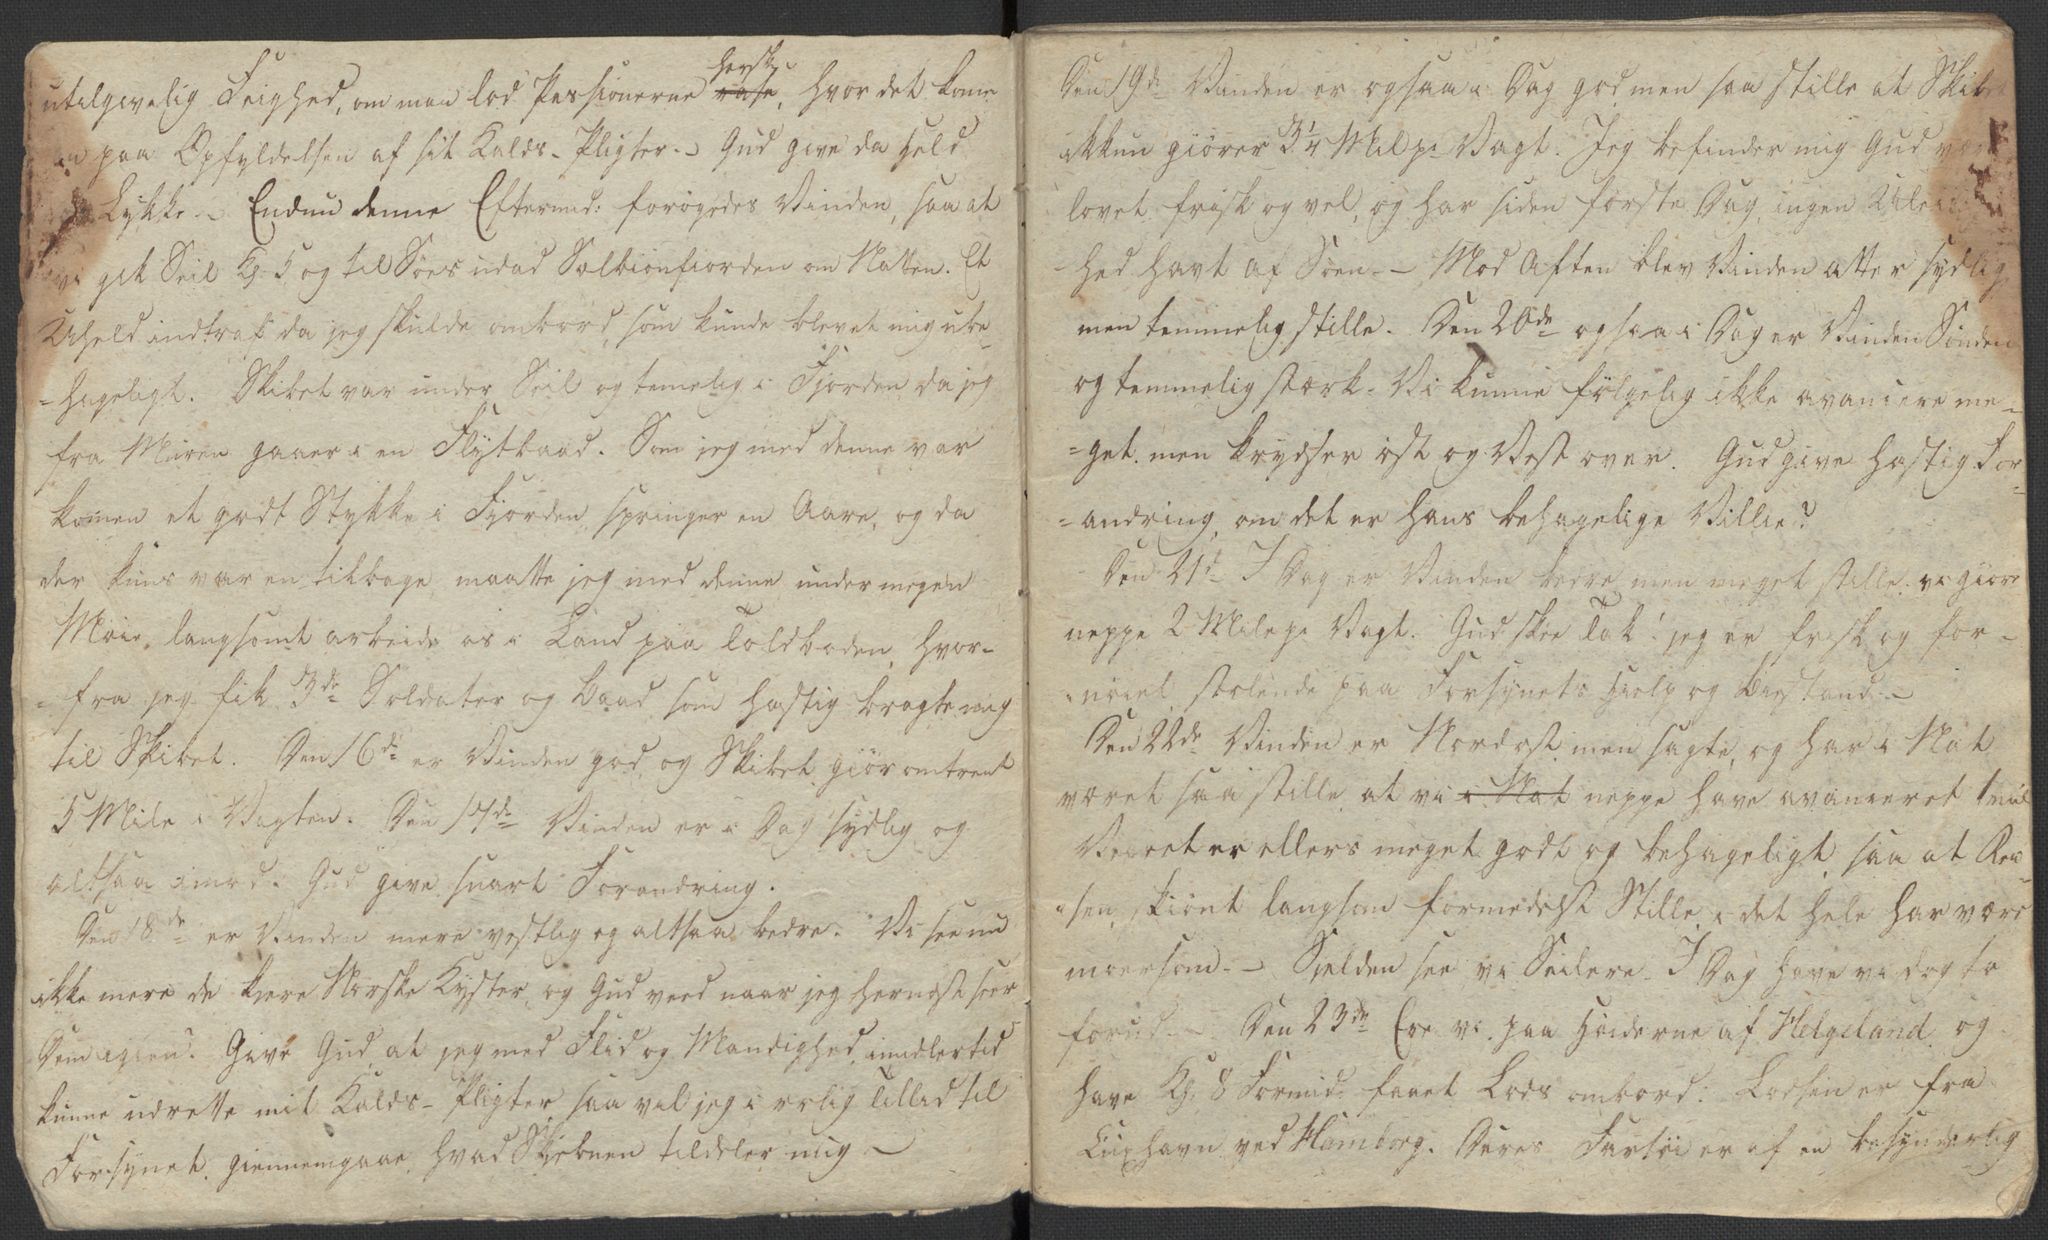 utilgivelig Feighed, om man lod Passionerne herske rase, hvor det kome
paa Opfyldelsen af sit Kalds-Pligter. - Gud give da Held
Lykke - Endnu denne Eftermid: forøgedes Vinden, saa at
vi gik Seil Kl. 5 og til Søes udad Folkionfiorden om Natten. Et
Uheld indtraf da jeg skulde ombord, som kunde blevet mig ube-
-hageligt. Skibet var under Seil og temelig i Fjorden da jeg
fra Muren gaaer i en Flytbaad. Som jeg med denne var
komen et godt Stykke i Fjorden, springer en Aare, og da
der kuns var en tilbage, maatte jeg med denne under megen
Møie, langsomt arbeide os i Land paa Toldboden, hvor-
-fra jeg fik 3de Soldater og Baad som hastig bragte mig
til Skibet. Den 16de er Vinden god, og Skibet giør omtrent
5 Mile i Vagten. Den 17de Vinden er i Dag sydlig og
altsaa imod. Gud give snart Forandring.
Den 18de er Vinden mere vestlig og altsaa bedre. Vi see nu
ikke mere de kiere Norske Kyster, og Gud veed naar jeg hernæst seer
Dem igien. Give Gud, at jeg med Flid og Mandighed imidlertid
kunne udrette mit Kalds-Pligter, saa vil jeg i rolig Tillid til
Forsynet, giennemgaae, hvad Skjebnen tildeler mig -
Den 19de Vinden er ogsaa i Dag god, men saa stille at Skibet
ikkun giører 3 1/4 Mil pr Vagt. Jeg befinder mig Gud være
lovet frisk og vel, og har siden første Dag, ingen
hed havt af Søen. - Mod Aften blev Vinden atter sydlig
men temmelig stille. Den 20de ogsaa i Dag er Vinden Sønden
og temmelig stærk. Vi kunne følgelig ikke avancere me-
-get, men krydser øst og Vest over. Gud give hastig For-
-andring, om det er hans behagelige Villie?
Den 21de I Dag er Vinden bedre, men meget stille. vi giøre
neppe 2 Mile pr Vagt. Gud skee Tak! jeg er frisk og for-
-nøiet, stolende paa Forsynets Hielp og Biestand. -
Den 22de Vinden er Nordost, men sagte, og har i Nat
været saa stille, at vi i Nat neppe have avanceret 1 Mil
Veiret er ellers meget godt og behageligt, saa at Rei-
-sen, skiønt langsom formedelst Stille, i det hele har været
moersom. - Sielden see vi Seilere. I Dag have vi dog to
forud. - Den 23de Ere vi paa Høiderne af Helgeland og
have Kl. 8 Formid: faaet Lods ombord. Lodsen er fra
Cuxhavn ved Hamborg. Deres Fartøi er af en besynderlig